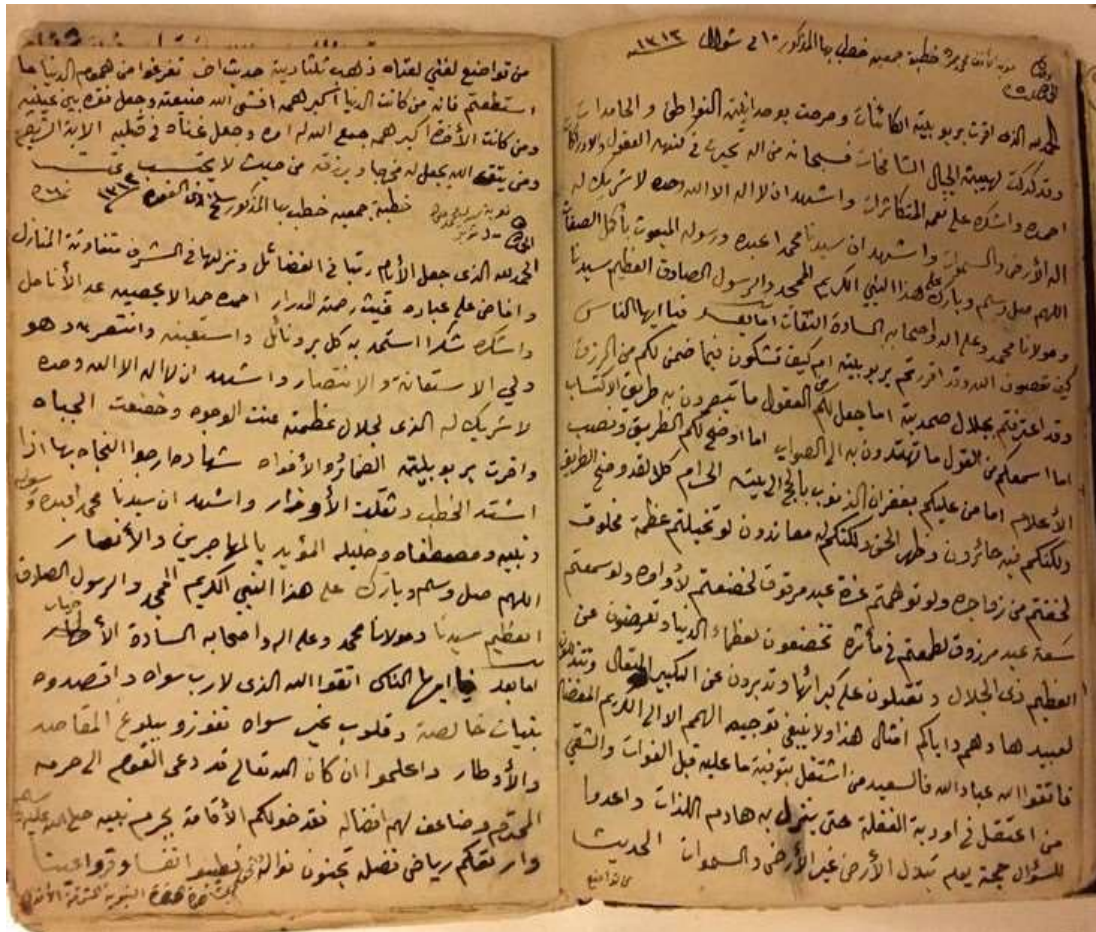 خطبة جمعية خطب بها المذكور ١٠ في شوال ١٣١٣
الحمد لله الذي اقرت بربوبيته الكائنات وصرحت بوحدانيته النواطق والجامدات
وتدكدكت لهيبته الجبال الشامخات فسبحانه من اله تحيرت في كنهه العقول والادراكات
احمده واشكره على نعمه المتكاثرات واشهد ان لا اله الا الله وحده لا شريك له
اله الأرض والسموات واشهد ان سيدنا محمدا عبده ورسوله المبعوث بأكمل الصفات
اللهم صل وسلم وبارك على هذا النبي الكريم الممجد والرسول الصادق العظيم سيدنا
ومولانا محمد وعلى اله واصحابه السادة الثقات اما بعد فيا ايها الناس
كيف تعصون الله وقد اقررتم بربوبيته ام كيف تشكون فيما ضمن لكم من الرزق
وقد اعترفتم بجلال صمديته اما جعل لكم من العقول ما تبصرون به طريق الاكتساب
اما اسمعكم من القول ما تهتدون به الى الصواب اما اوضح لكم الطريق ونصب
الأعلام اما من عليكم بغفران الذنوب بالحج الى بيته الحرام كلا لقد وضح الطريق
ولكنكم فيه حائرون وظهر الحق ولكنكم له معاندون لو تخيلتم عظمة مخلوق
لخفتم من زواجره ولو توهمتم عزة عبد مرقوق لخضعتم لأوامره ولو سمعتم
سعة عبد مرزوق لطمعتم في مآثره تخضعون لعظماء الدنيا وتعرضون عن
العظيم ذي الجلال وتقبلون على كبرائها وتدبرون عن الكبير المتعال وتتذللون
لعبيدها وهم واياكم امثال هذا ولا ينبغي توجيه الهمم الا الى الكريم المفضال
فاتقوا الله عباد الله فالسعيد من اشتغل بتوفية ما عليه قبل الفوات والشقي
من اعتقل في اودية الغفلة حتى ينزل به هادم اللذات واعدوا
للسؤال حجة يوم تبدل الأرض غير الأرض والسموات الحديث
من تواضع
من تواضع لغني لغناه ذهب ثلثا دينه حديث اخر تفرغوا من هموم الدنيا ما
استطعتم فانه من كانت الدنيا اكبر همه افشى الله ضيعته وجعل فقره بين عينيه
ومن كانت الأخرة اكبر همه جمع الله له امره وجعل غناه في قلبه الاية
ومن يتق الله يجعل له مخرجا ويرزقه من حيث لا يحتسب
خطبة جمعية خطب بها المذكور في ذي القعدة ١٣١٣
الحمد لله الذي جعل الأيام رتبا في الفضائل ونزلها في الشرف متفاوتة المنازل
وافاض على عباده غيث رحمته المدرار احمده حمدا لا يحصيه عد الأنامل
واشكره شكرا استمد به كل بر ونائل واستعينه وانتصر به وهو
ولي الاستعانة والانتصار واشهد ان لا اله الا الله وحده
لا شريك له الذي لجلال عظمته عنت الوجوه وخضعت الجباه
واقرت بربوبيته الضمائر والأفواه شهادة ارجوا النجاة بها اذا
اشتد الخطب وثقلت الأوزار واشهد ان سيدنا محمدا عبده ورسوله
ونبيه ومصطفاه وخليله المؤيد بالمهاجرين والأنصار
اللهم صل وسلم وبارك على هذا النبي الكريم الممجد والرسول الصادق
العظيم سيدنا ومولانا محمد وعلى اله واصحابه السادة
اما بعد فيا ايها الناس اتقوا الله الذي لا رب سواه واقصدوه
بنيات خالصة وقلوب تفوزوا ببلوغ المقاصد
والأوطار واعلموا ان كان الله تعالى قد دعى القوم الى حرمه
المحترم وضاعف لهم افضاله فقد خولكم الأقامة بحرم نبيه صلى الله عليه وسلم
رياض فضله تجنون نواله فطيبوا انفسا وقروا عينا